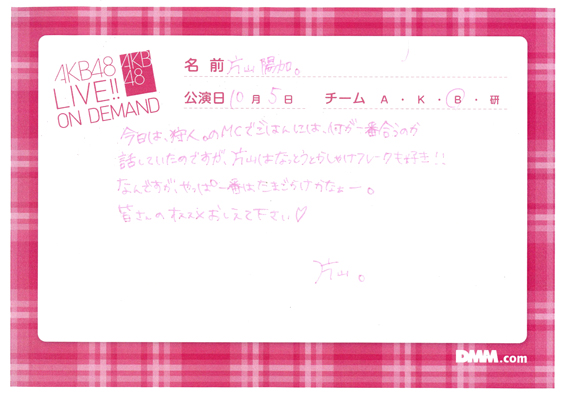 AKB48
LIVE!!
ON DEMAND
AKB
48
名前 片山陽加。
公演日 10月5日 チーム A・K・B・研
今日は、狩人。のMCでごはんには、何が一番合うのか
話していたのですが、片山はなっとうとかしゃけフレークも好き!!
なんですが、やっぱ一番はたまごかけかなぁー。
皆さんのオススメおしえて下さい♡
片山。
DMM.com